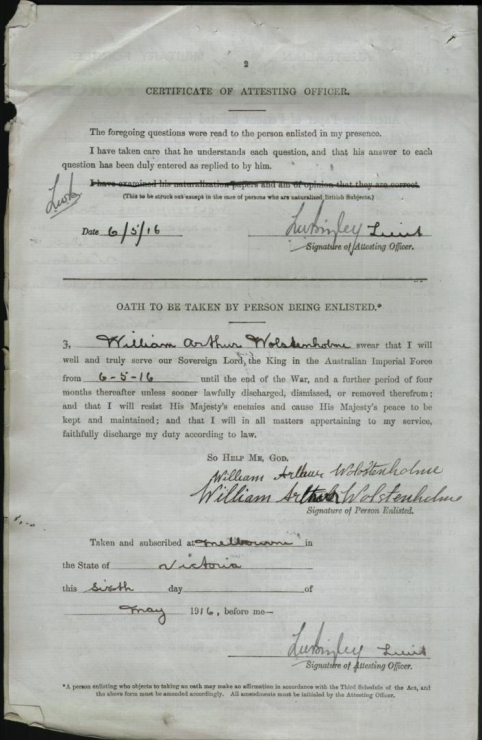 2
CERTIFICATE OF ATTESTING OFFICER.
The foregoing questions were read to the person enlisted in my presence.
I have taken care that he understands each question, and that his answer to each
question has been duly entered as replied to by him.
I have examined his naturalization papers and am of opinion that they are correct.
(This to be struck out except in the case of persons who are naturalized British Subjects.)
Date 6/5/16 Lieut
Signature of Attesting Officer.
OATH TO BE TAKEN BY PERSON BEING ENLISTED.*
I, William Arthur Wolstenholme swear that I will
well and truly serve our Sovereign Lord, the King in the Australian Imperial Force
from 6-5-16 until the end of the War, and a further period of four
months thereafter unless sooner lawfully discharged, dismissed, or removed therefrom;
and that I will resist His Majesty's enemies and cause His Majesty's peace to be
kept and maintained; and that I will in all matters appertaining to my service,
faithfully discharge my duty according to law.
SO HELP ME, GOD.
William Arthur Wolstenholme
William Arthur Wolstenholme
Signature of Person Enlisted.
Taken and subscribed at Melbourne in
the State of Victoria
this Sixth day of
May 1916, before me—
Lieut
Signature of Attesting Officer.
*A person enlisting who objects to taking an oath may make an affirmation in accordance with the Third Schedule of the Act, and
the above form must be amended accordingly. All amendments must be initialed by the Attesting Officer.